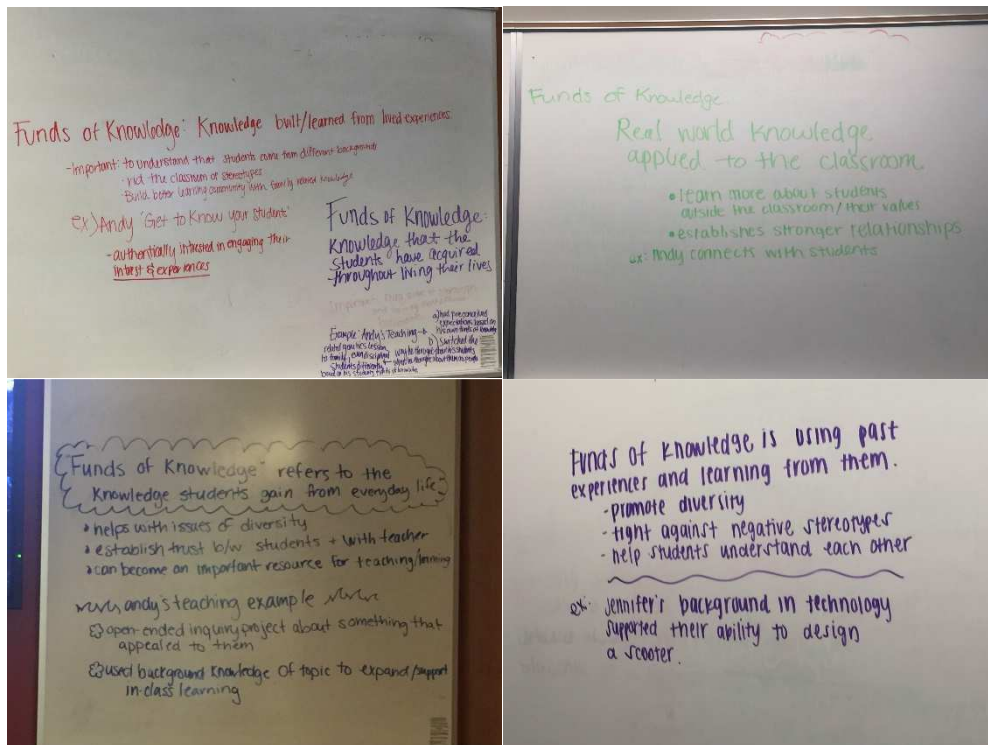 Funds of Knowledge: Knowledge built/learned from lived experiences.
-important: to understand that students come from different backgrounds
- rid the classroom of stereotypes
- Build better learning community with family related knowledge
ex) Andy "Get to Know your student"
- authentically intrested in engaging their
intrest & experiences
Funds of Knowledge:
Knowledge that the
students have acquired
throughout living their lives
Example: Andy's Teaching →
a) had preconceived
expectations based on
his own funds of knowledge
b) switched the
way he thought about his students
related genetics lesson
to family,
students differently
based on his students funds of knowledge
Funds of Knowledge
Real world knowledge
applied to the classroom
• learn more about students
outside the classroom/their values
• establishes stronger relationships
ex: Andy connects with students
"Funds of Knowledge" refers to the
Knowledge students gain from everyday life
• helps with issues of diversity
• establish trust b/w students + with teacher
• can become an important resource for teaching/learning
andy's teaching example
open-ended inquiry project about something that
appealed to them
used background knowledge of topic to expand/support
in-class learning
Funds of Knowledge is using past
experiences and learning from them.
- promote diversity
- fight against negative stereotypes
- help students understand each other
ex: Jennifer's background in technology
supported their ability to design
a scooter.